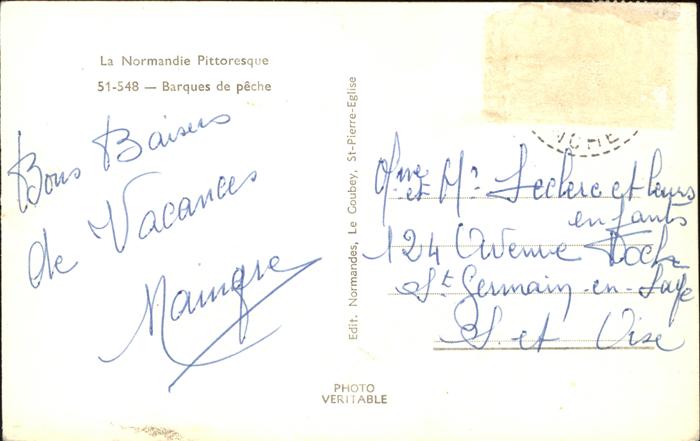 La Normandie Pittoresque
51-548 — Barques de pêche
Bons Baisers
de Vacances
Edit. Normandes, Le Goubey, St-Pierre-Eglise
CHE
Mme et Mr Leclerc et leurs
enfants
124 Avenue Foch
St Germain-en-Laye
S. et Oise
PHOTO
VERITABLE